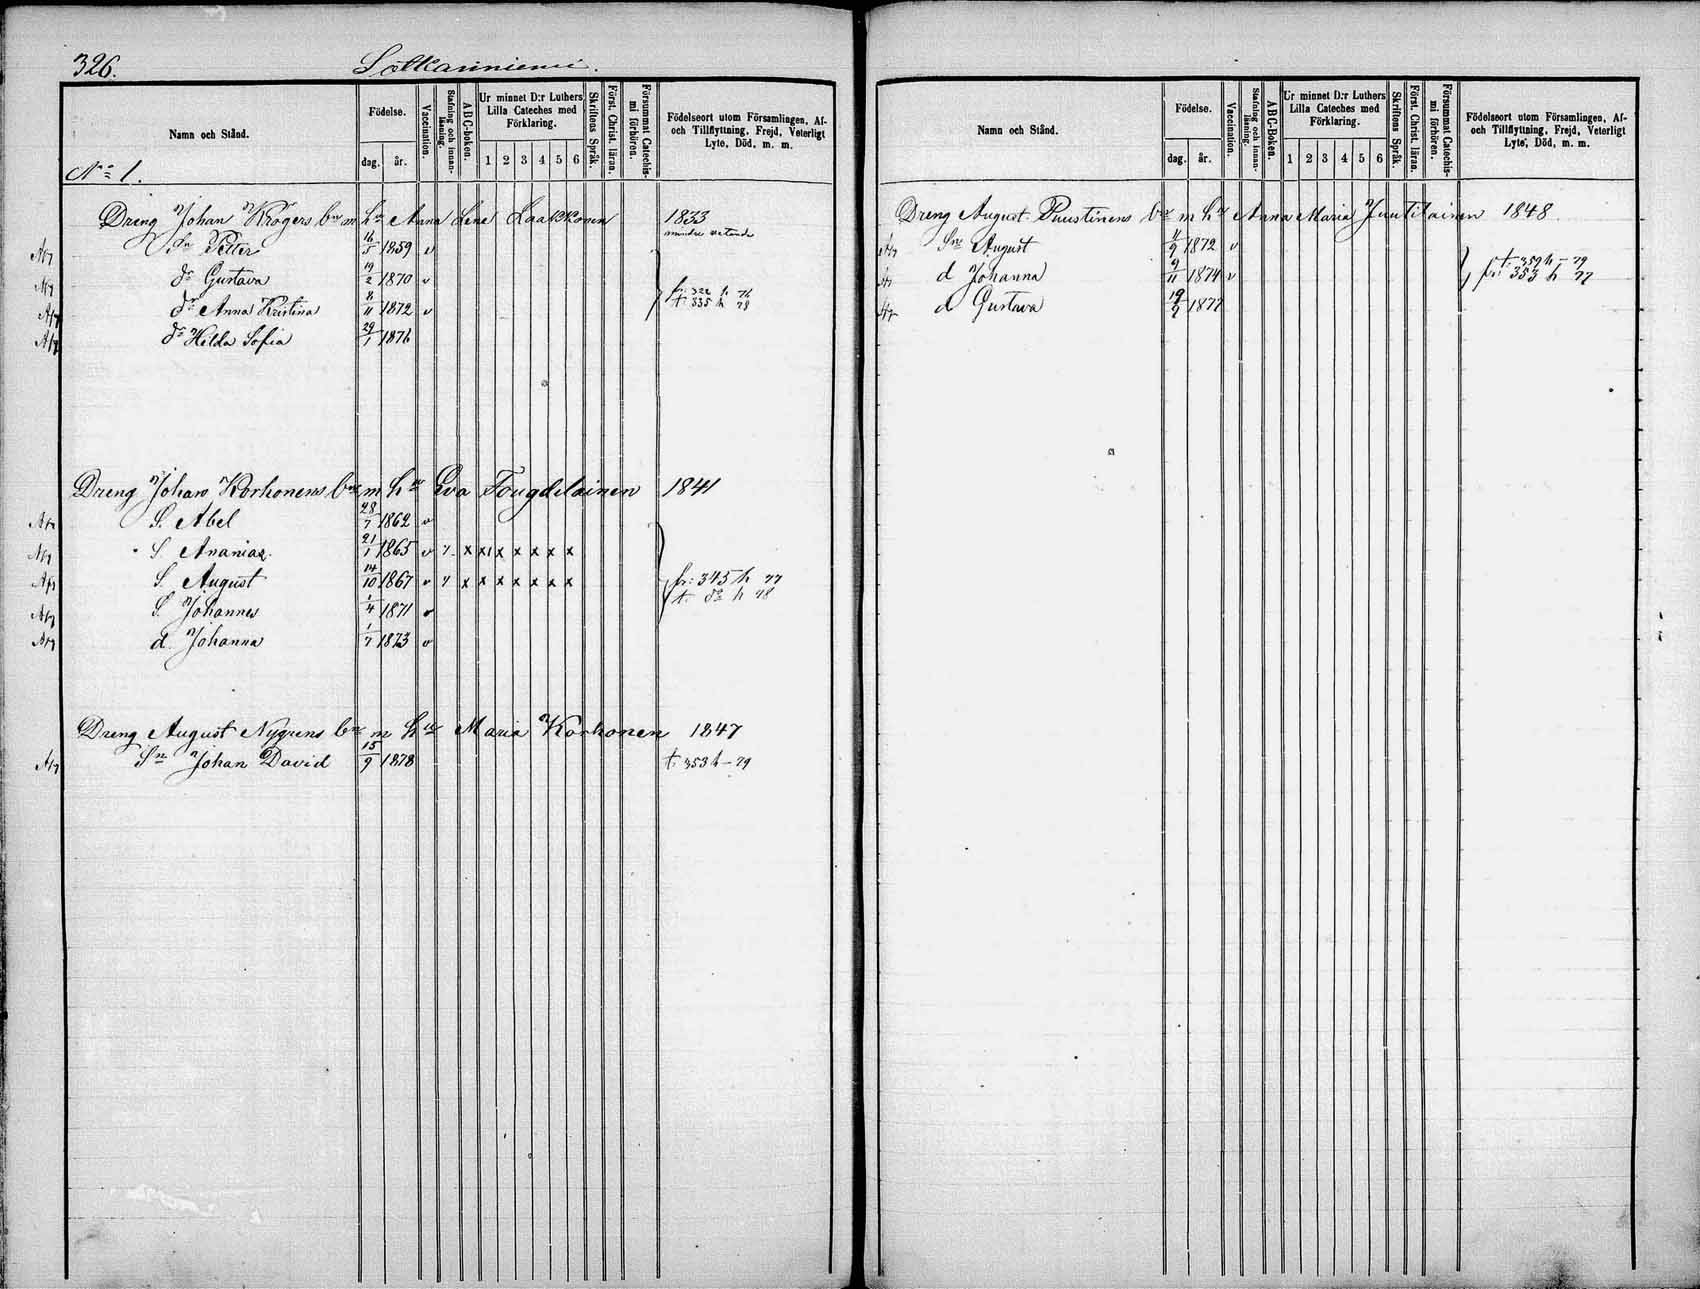 326.
Sotkanniemi.
Namn och Stånd.
Födelse.
dag. år.
Vaccination.
Stafning och innanläsning.
ABC-boken.
Ur minnet D:r Luthers Lilla Cateches med Förklaring.
1 2 3 4 5 6
Skriftens Språk.
Först. Christ. läran.
Försummat Catechismi förhören.
Födelseort utom Församlingen, Af- och Tillflyttning, Frejd, Veterligt Lyte, Död, m. m.
No 1.
Dreng Johan Krögers bn m hu Anna Lena Laakkonen 1833
mindre vetande
Sn Petter 16/5 1859 v
dr Gustava 19/2 1870 v
dr Anna Kristina 8/11 1872 v
fr: 322 h 76
t: 335 h 78
dr Helda Sofia 29/1 1876
Dreng Johan Korhonens bn m hu Eva Tougdelainen 1841
S. Abel 28/7 1862 v
S Ananias. 21/1 1865 v x x x x x x x
S. August 14/10 1867 v x x x x x x x
fr: 345 h 77
t: do h 78
S. Johannes 1/4 1871 v
d. Johanna 1/7 1873 v
Dreng August Nygrens bn m hu Maria Korhonen 1847
Sn Johan David 15/9 1878 t: 353 h - 79
Namn och Stånd.
Födelse.
dag. år.
Vaccination.
Stafning och innanläsning.
ABC-Boken.
Ur minnet D:r Luthers Lilla Cateches med Förklaring.
1 2 3 4 5 6
Skriftens Språk.
Först. Christ. läran.
Försummat Catechismi förhören.
Födelseort utom Församlingen, Af- och Tillflyttning, Frejd, Veterligt Lyte, Död, m. m.
Dreng August Puustinens bn m hu Anna Maria Juutilainen 1848
Sn August 11/9 1872 v
t: 359 h - 79
d Johanna 9/11 1874 v
fr: 353 h 77
d Gustava 19/7 1877